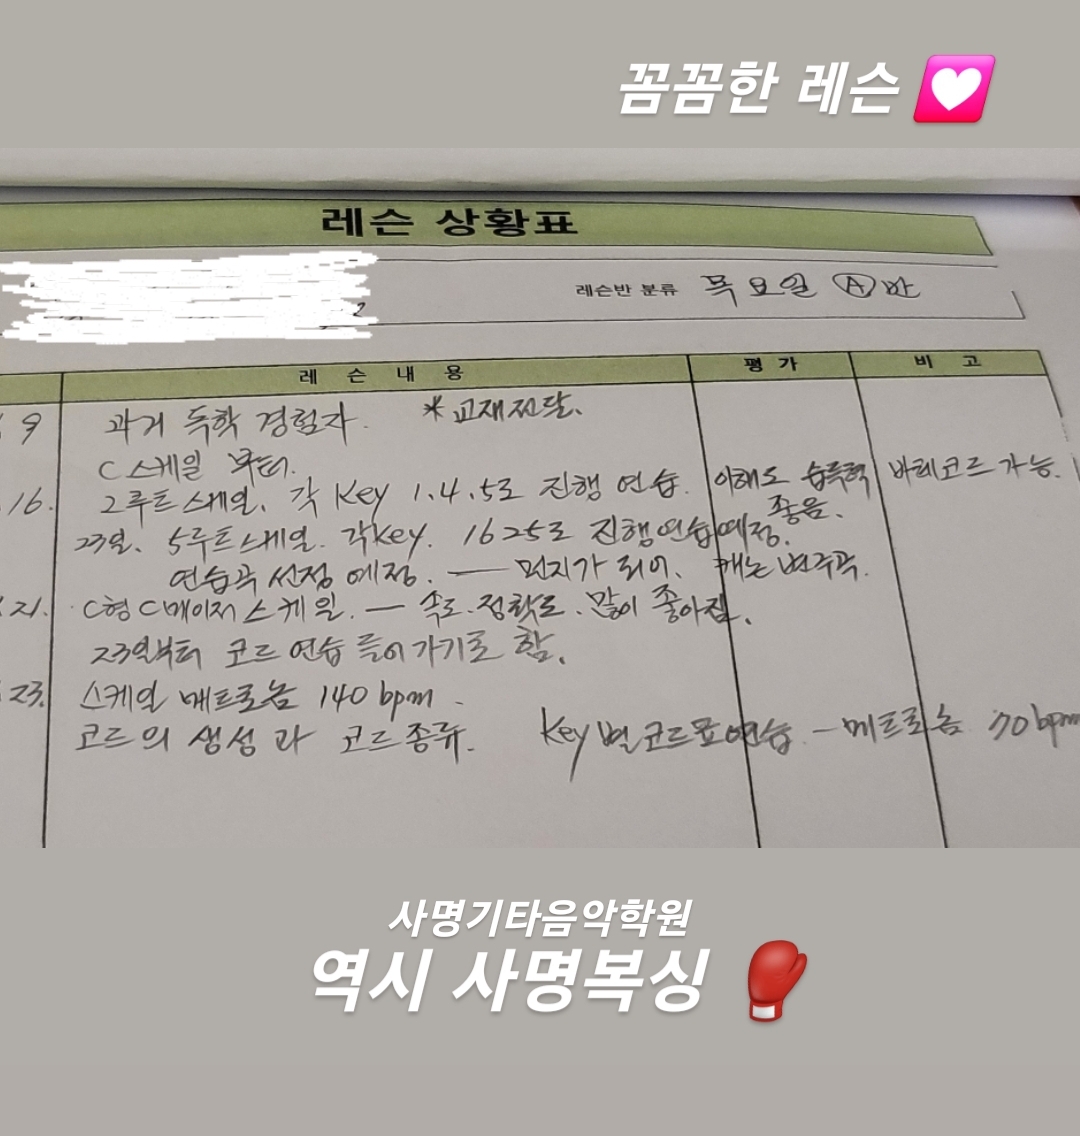 꼼꼼한 레슨 💟
레슨 상황표
레슨반 분류 목요일 Ⓐ반
레 슨 내 용 평 가 비 고
9 과거 독학 경험자. * 교재전달.
C 스케일 부터.
16. 2루트스케일. 각 Key 1.4.5도 진행 연습. 이해도 습득력 좋음. 바레코드 가능.
23일. 5루트스케일. 각key. 1625도 진행연습예정.
연습곡 선정 예정. — 먼지가 되어. 캐논변주곡.
21. C형 C메이저 스케일. — 속도. 정확도. 많이 좋아짐.
23일부터 코드 연습 들어가기로 함.
23. 스케일 메트로놈 140 bpm.
코드의 생성과 코드종류. Key별 코드표연습. — 메트로놈 70bpm
사명기타음악학원
역시 사명복싱 🥊